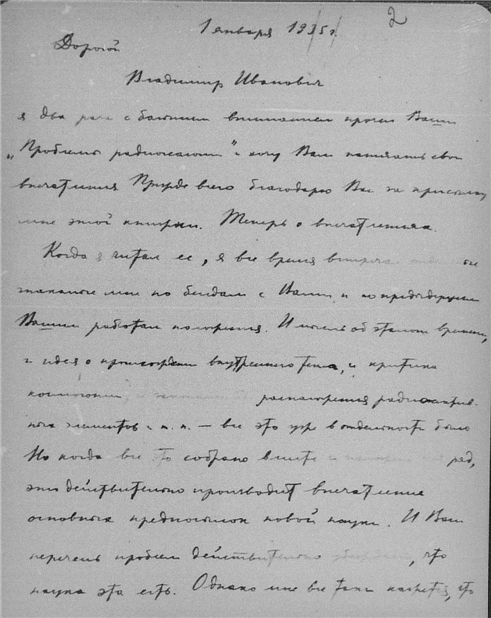 2
1 января 1935 г.
Дорогой
Владимир Иванович
я два раза с большим вниманием прочел Ваши
„Проблемы радиогеологии“ и хочу Вам написать свои
впечатления Прежде всего благодарю Вас за присылку
мне этой книжки. Теперь о впечатлениях.
Когда я читал ее, я все время встречал
знакомые мне по беседам с Вами и по предыдущим
Вашим работам положения. И мысль об этапах времени,
и идея о происхождении внутреннего тепла, и критика
космогонии, распадения радиоактив-
ных элементов и т.п. — все это уже в отдельности было
Но когда все это собрано вместе ряд,
это действительно производит впечатление
основных предпосылок новой науки. И Ваш
перечень проблем действительно что
наука эта есть. Однако мне все таки кажется, что